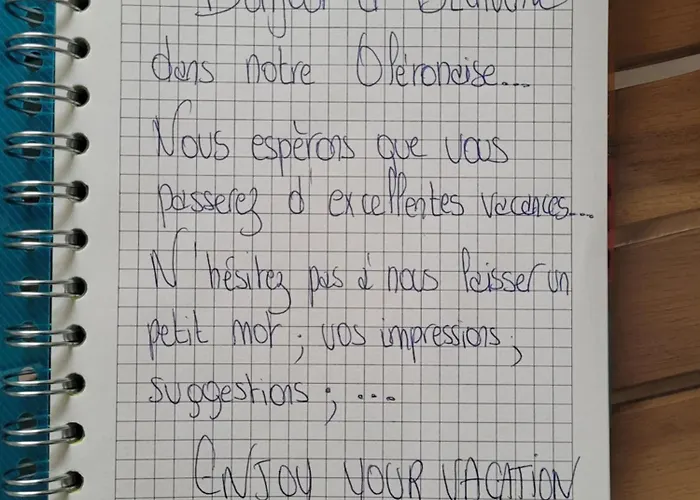 dans notre Oléronaise...
Nous espèrons que vous
passerez d'excellentes vacances...
N'hésitez pas à nous laisser un
petit mot ; vos impressions ;
suggestions ; ...
ENJOY YOUR VACATION